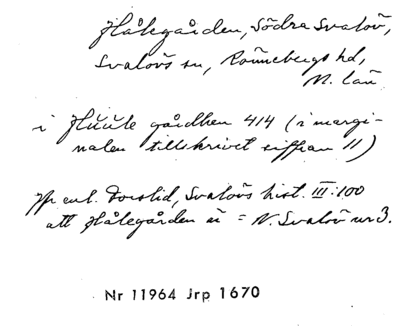 Hålegården, Södra Svalöv,
Svalövs sn, Rönnebergs hd,
M. län
i Håůle gårdhen 414 (i margi-
nalen tillskrivet siffran 11)
Jfr enl. Dovstid, Svalövs hist. III:100
att Hålegården är = N. Svalöv nr 3.
Nr 11964 Jrp 1670